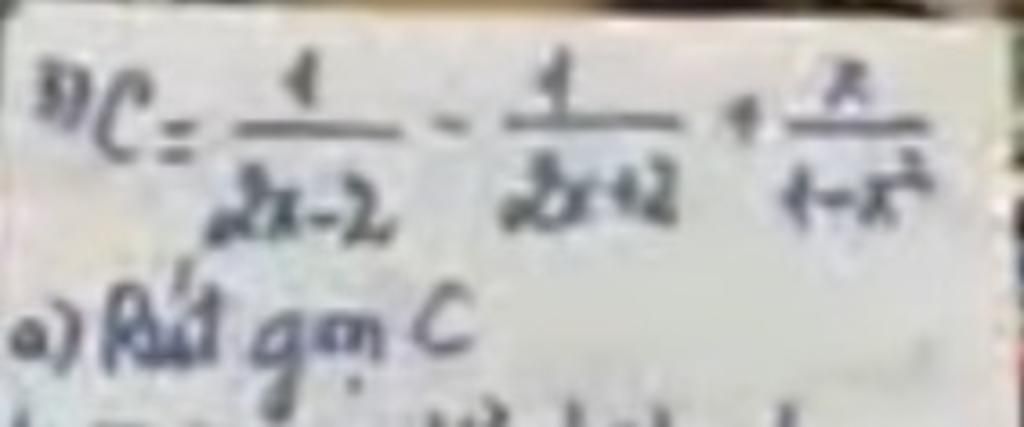 C = \frac{1}{2x-2} - \frac{1}{2x+2} + \frac{x}{1-x^2}
a) Rút gọn C